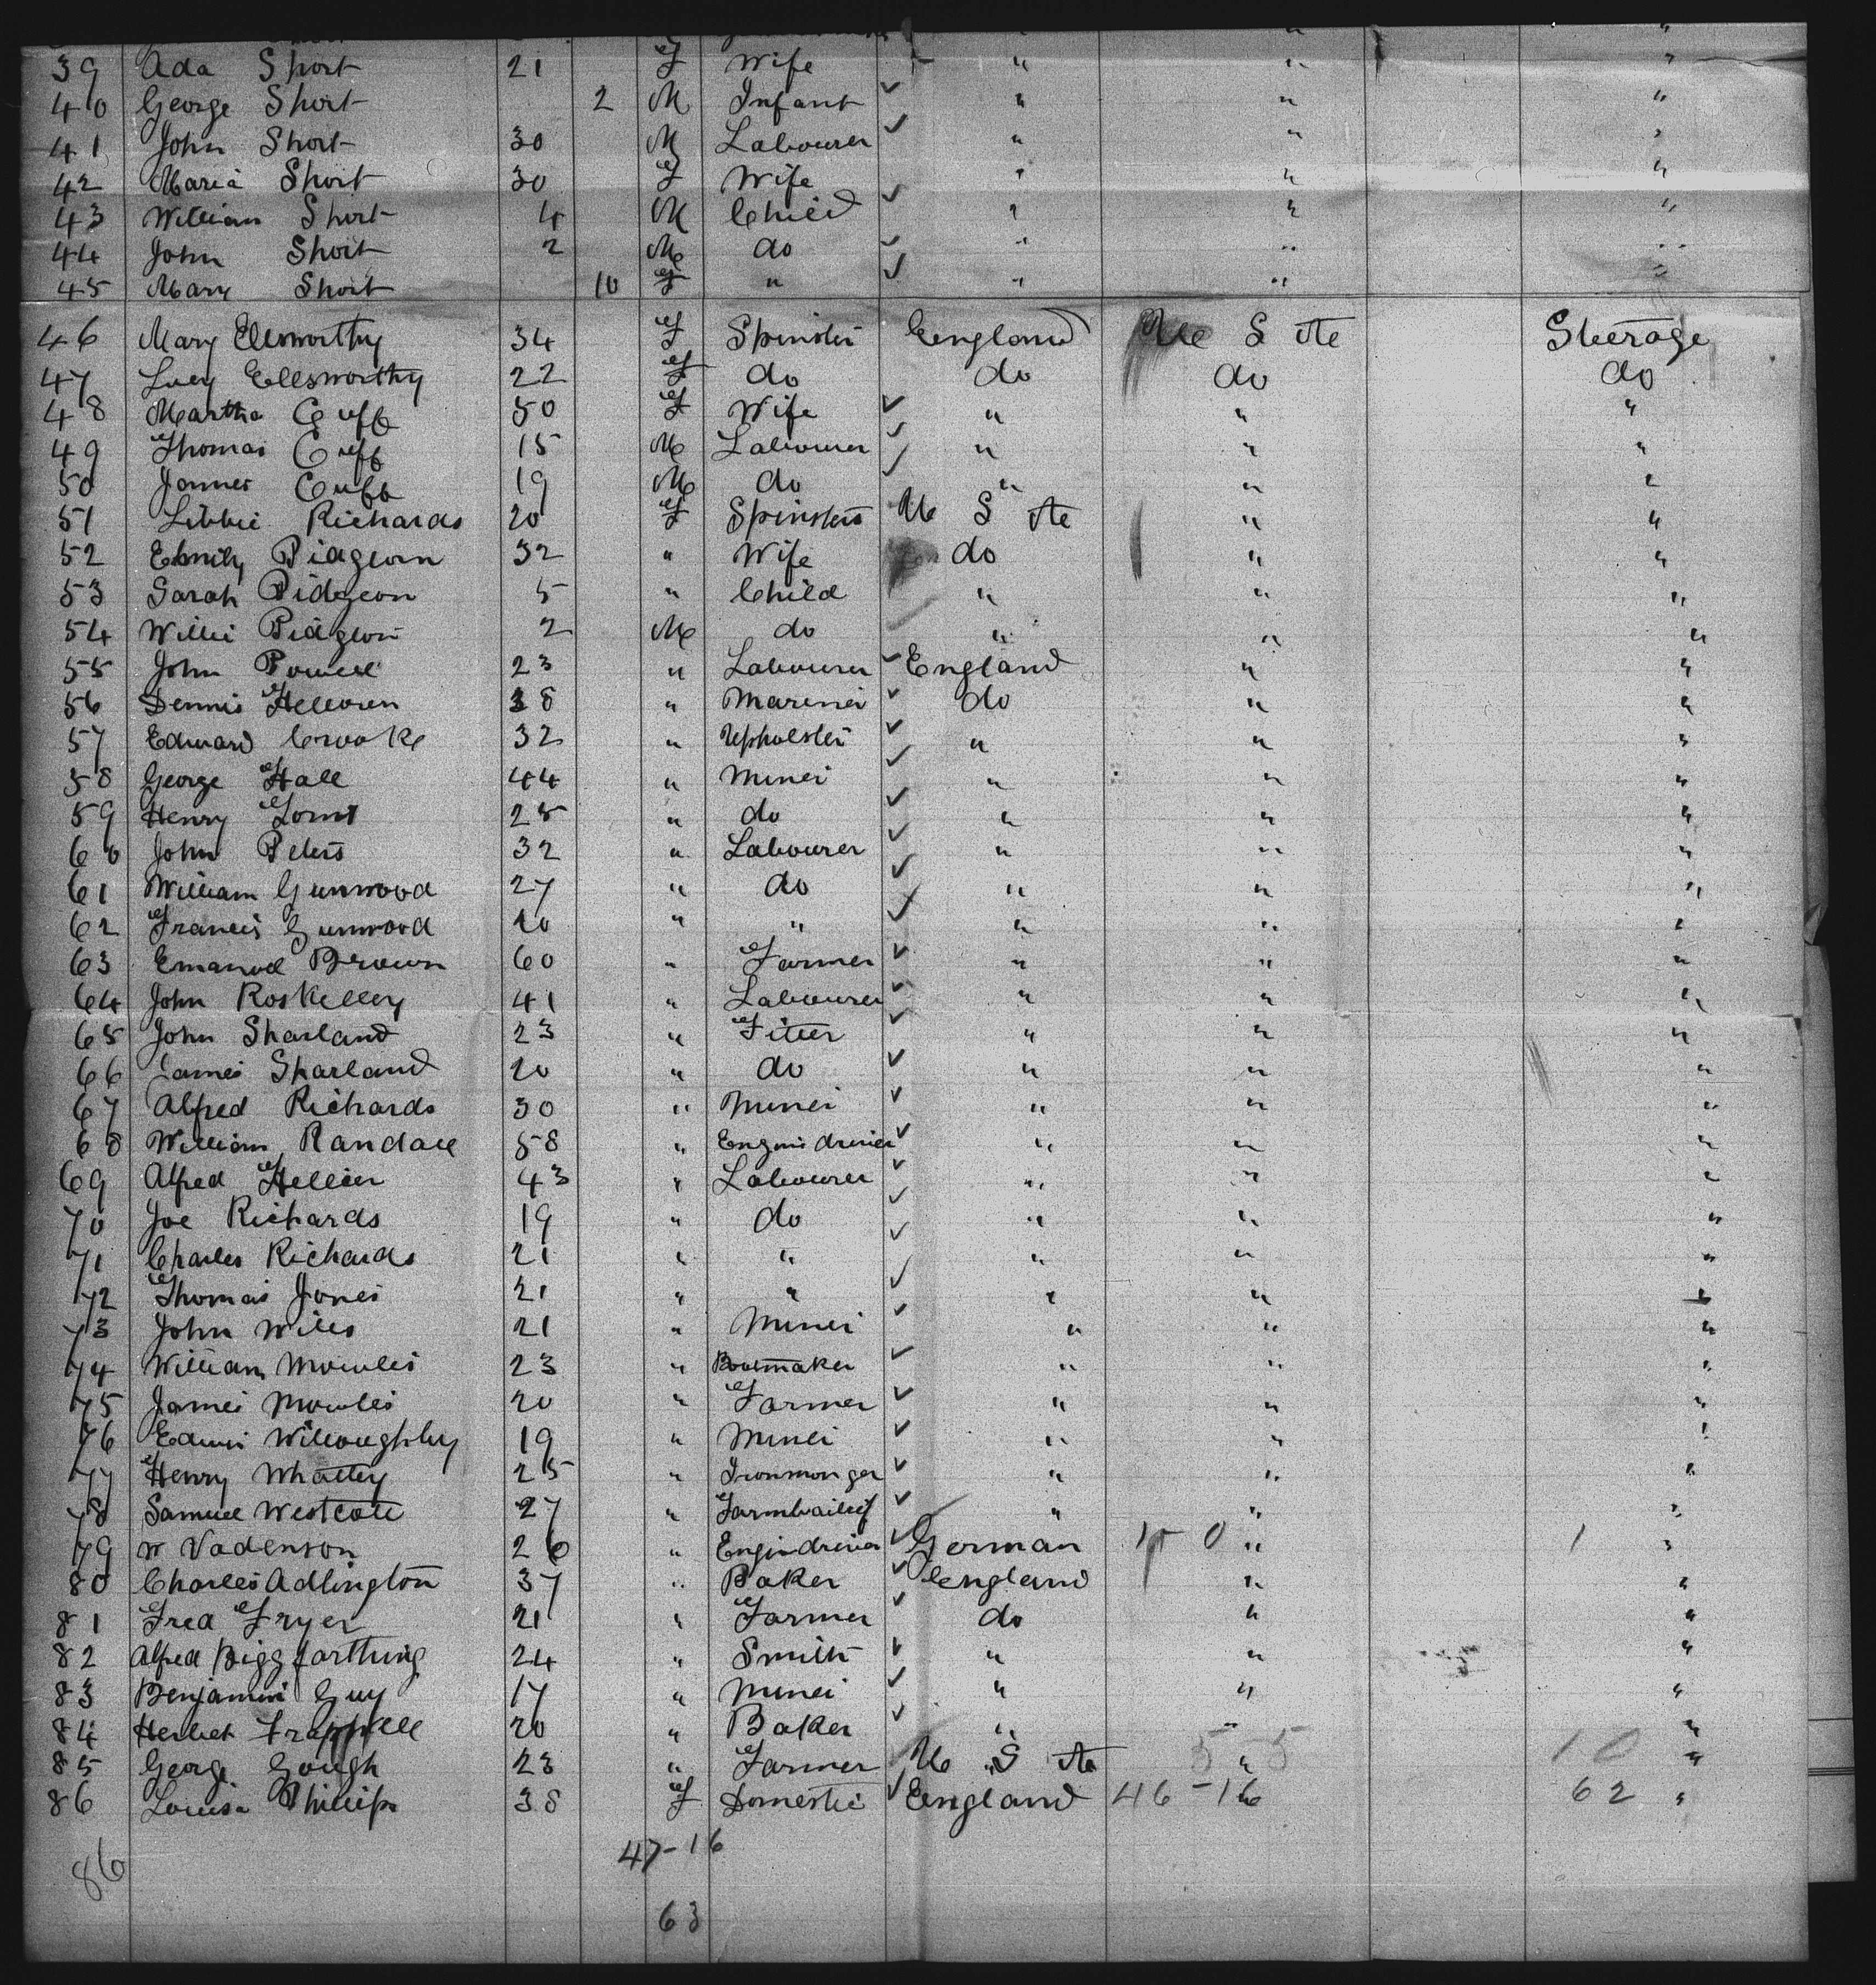 39 Ada Short 21 F Wife " " "
40 George Short 2 M Infant " " "
41 John Short 30 M Labourer " " "
42 Maria Short 30 F Wife " " "
43 William Short 4 M Child " " "
44 John Short 2 M do " " "
45 Mary Short 10 F " " " "
46 Mary Ellsworthy 34 F Spinster England U S Ste Steerage
47 Lucy Ellsworthy 22 F do do do do
48 Martha Cuff 50 F Wife " " "
49 Thomas Cuff 15 M Labourer " " "
50 James Cuff 19 M do " " "
51 Libbie Richards 20 F Spinster U S Ste " "
52 Emily Pidgeon 32 " Wife do " "
53 Sarah Pidgeon 5 " Child " " "
54 Willie Pidgeon 2 M do " " "
55 John Powell 23 " Labourer England " "
56 Dennis 38 " Mariner do " "
57 Edward Crooke 32 " Upholster " " "
58 George Hall 44 " Miner " " "
59 Henry 25 " do " " "
60 John Peters 32 " Labourer " " "
61 William Gunwood 27 " do " " "
62 Francis Gunwood 20 " " " " "
63 Emanuel Brown 60 " Farmer " " "
64 John Roskelley 41 " Labourer " " "
65 John Sharland 23 " Fitter " " "
66 James Sharland 20 " do " " "
67 Alfred Richards 30 " Miner " " "
68 William Randall 58 " Engine driver " " "
69 Alfred Hellier 43 " Labourer " " "
70 Joe Richards 19 " do " " "
71 Charles Richards 21 " " " " "
72 Thomas Jones 21 " " " " "
73 John Wills 21 " Miner " " "
74 William Mowles 23 " Bootmaker " " "
75 James Mowles 20 " Farmer " " "
76 Edwin Willoughby 19 " Miner " " "
77 Henry Whatley 25 " Ironmonger " " "
78 Samuel Westcott 27 " Farmbailiff " " "
79 W Vadenson 26 " Engindriver German 1 - 0 " 1 "
80 Charles Adlington 37 " Baker England " "
81 Fred Fryer 21 " Farmer do " "
82 Alfred Biggfarthing 24 " Smith " " "
83 Benjamin Guy 17 " Miner " " "
84 Herbert Trappell 20 " Baker " " "
85 George Gough 23 " Farmer U S Ste 5 " 5 10 "
86 Louisa Phillips 38 F Domestic England 46-16 62 "
86 47-16
63